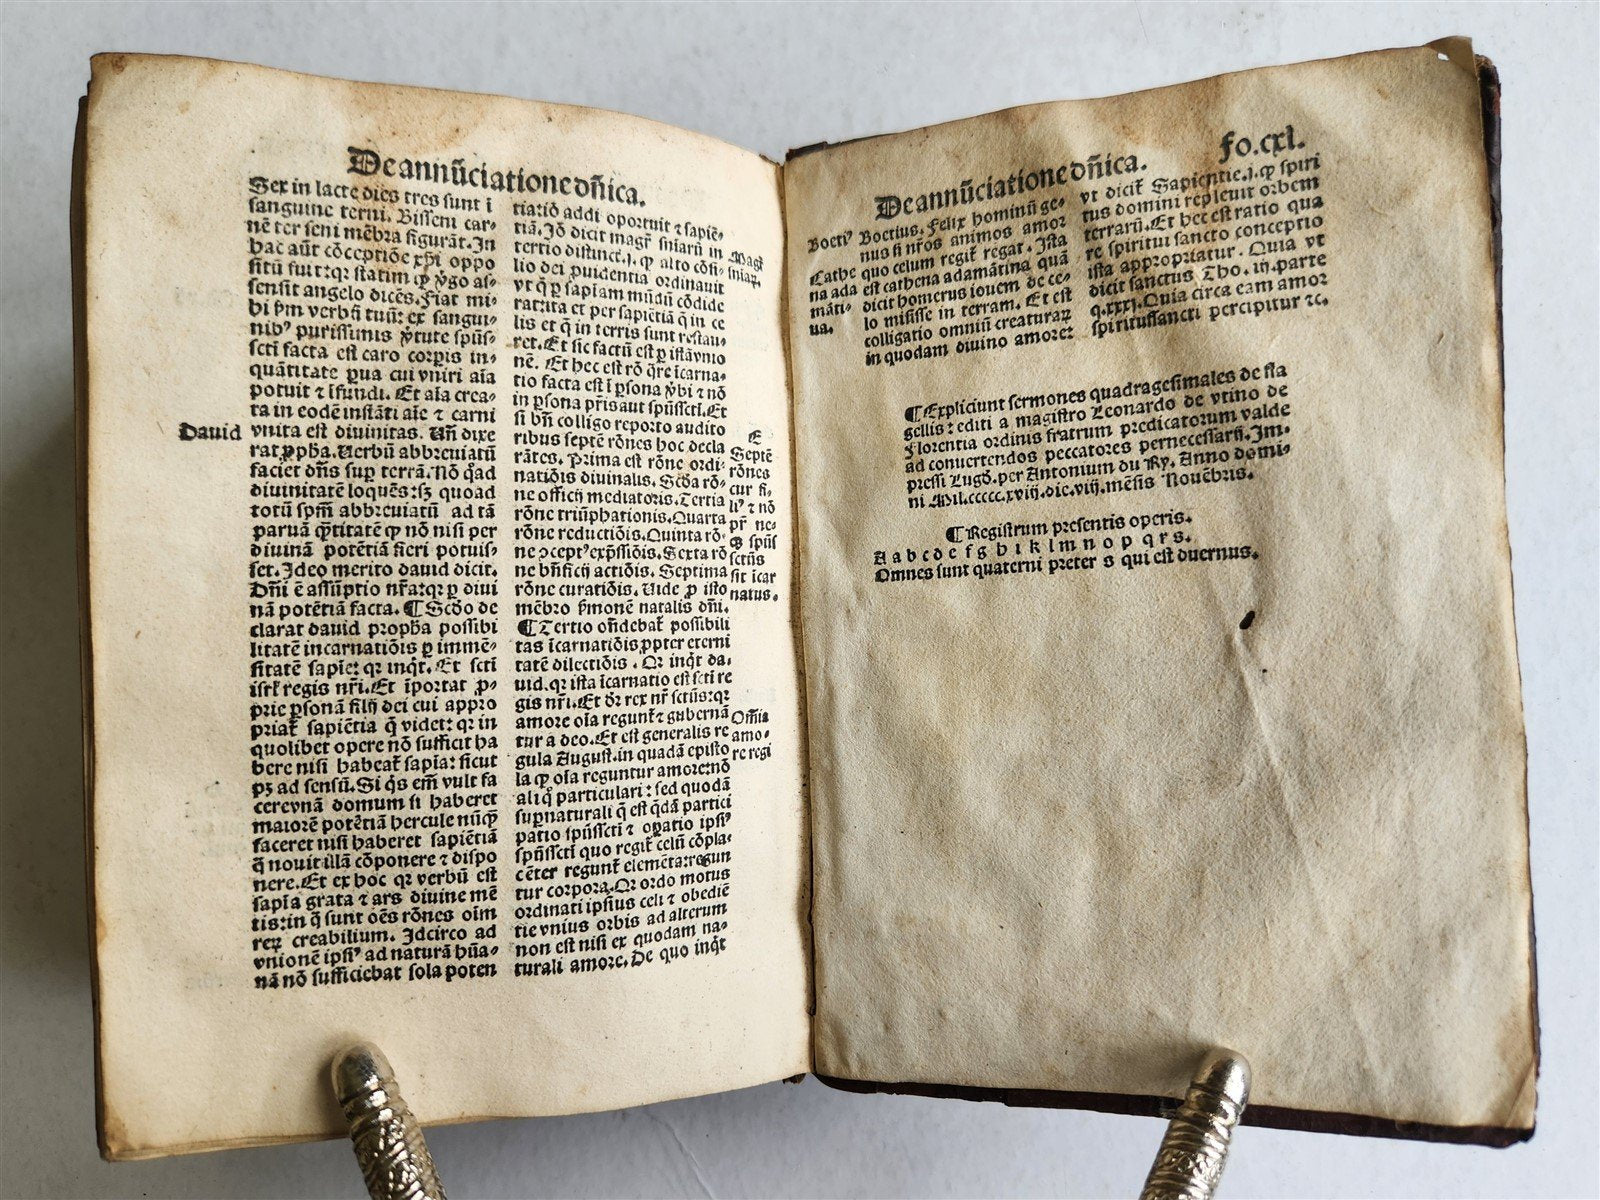 De annūciatione dn̄ica.
Sex in lacte dies tres sunt ī
sanguine terni. Bisseni car-
nē ter seni mēbra figurāt. In
hac aūt cōceptiōe xp̄i oppo
situ fuit: qr statim ꝙ v̄go as-
sensit angelo dicēs. Fiat mi-
hi ẜm verbū tuū: ex sangui-
nibꝰ purissimis v̄tute spūs-
scti facta est caro corpis in-
quātitate parua cui vniri aīa
potuit ⁊ īfundi. Et aīa crea-
ta in eodē instāti aīe ⁊ carni
David
vnita est diuinitas. Un̄ dixe
rat ꝓpha. Verbū abbreuiatū
faciet dn̄s sup terrā. Nō qͦad
diuinitatē loquēs: sꝫ quoad
totū spm̄ abbreuiatū ad tā
paruā q̄titatē ꝙ nō nisi per
diuinā potētiā fieri potuis-
set. Ideo merito dauid dicit.
Dn̄i ē assūptio nr̄a: qr p diui
nā potētiā facta. ¶ Scdo de
clarat dauid propha possibi
litatē incarnatiōis p immē-
sitatē sapie: qr inqt. Et scti
isrl regis nr̄i. Et īportat ꝓ-
prie psonā filij dei cui appro
priat sapiētia q̄ videt: qr in
quolibet opere nō sufficit ha
bere nisi habeat sapia: sicut
pꝫ ad sensū. Si q̄s em̄ vult fa
cere vnā domum si haberet
maiorē potētiā hercule nūqꝫ
faceret nisi haberet sapiētiā
q̄ nouit illā cōponere ⁊ dispo
nere. Et ex hoc qr verbū est
sapia grata ⁊ ars diuine mē
tis: in q̄ sunt oēs rōnes oīm
reꝝ creabilium. Idcirco ad
vnionē ipsiꝰ ad naturā hūa-
nā nō sufficiebat sola poten
tiariō addi oportuit ⁊ sapiē-
tiā. Iō dicit magr̄ sniarū in
Magr̄
sniaꝝ.
tertio distinct. j. ꝙ alto cōsi-
lio dei puidentia ordinauit
vt q̄ p sapiam mūdū cōdide
rat: ita et per sapiētiā q̄ in ce
lis et q̄ in terris sunt restau-
ret. Et sic factū est p istā vnio
nē. Et hec est rō q̄re īcarna-
tio facta est ī psona v̄bi ⁊ nō
in psona pr̄is aut spūsscti. Et
si bn̄ colligo reporto audito
ribus septē rōnes hoc decla
E
Septē
rōnes
cur fi-
liꝰ ⁊ nō
pr̄ ne-
qꝫ spūs
sctūs
sit icar
natus.
rātes. Prima est rōne ordi-
natiōis diuinalis. Scda rō-
ne officij mediatoris. Tertia
rōne triūphationis. Quarta
rōne reductiōis. Quinta rō-
ne ↄceptꝰ exp̄ssiōis. Sexta rō
ne bn̄ficij actiōis. Septima
rōne curatiōis. Vide p isto
mēbro ẜmonē natalis dn̄i.
¶ Tertio ondebat possibili
tas īcarnatiōis ꝓpter eterni
tatē dilectiōis. Qr inqt da-
uid. qr ista īcarnatio est scti re
gis nr̄i. Et dr̄ rex nr̄ sctūs: qr
amore oīa regunt ⁊ gubernā
Omīa
amo-
re regi
tur a deo. Et est generalis re
gula August. in quadā episto
la ꝙ oīa reguntur amore: nō
ali qͦ particulari: sed quodā
supnaturali q̄ est q̄dā partici
patio spūsscti ⁊ oꝑatio ipsiꝰ
spūsscti quo regit celū cōpla-
cēter regunt elemēta: regun
tur corpora. Qr ordo motus
ordinati ipsius celi ⁊ obediē
tie vnius orbis ad alterum
non est nisi ex quodam na-
turali amore. De quo inqt
De annūciatione dn̄ica.
fo. cxl.
Boetiꝰ
Boetius. Felix hominū ge-
nus si nr̄os animos amor
quo celum regit regat. Ista
Cathe
na ada
māti-
na.
est cathena adamātina quā
dicit homerus iouem de ce-
lo misisse in terram. Et est
colligatio omniū creaturaꝝ
in quodam diuino amore:
vt dicit Sapientie. j. ꝙ spiri
tus domini repleuit orbem
terrarū. Et hec est ratio qua
re spiritui sancto conceptio
ista appropriatur. Quia vt
dicit sanctus Tho. in. parte
q. xxxj. Quia circa eam amor
spiritussancti percipitur ⁊c.
¶ Expliciunt sermones quadragesimales de fla
gellis: editi a magistro Leonardo de vtino de
Florentia ordinis fratrum predicatorum valde
ad conuertendos peccatores pernecessarij. Im-
pressi Lugd. per Antonium du Ry. Anno domi-
ni Mil. ccccc. xviij. die. viij. mēsis Nouēbris.
¶ Registrum presentis operis.
A a b c d e f g h i k l m n o p q r s.
Omnes sunt quaterni preter s qui est duernus.